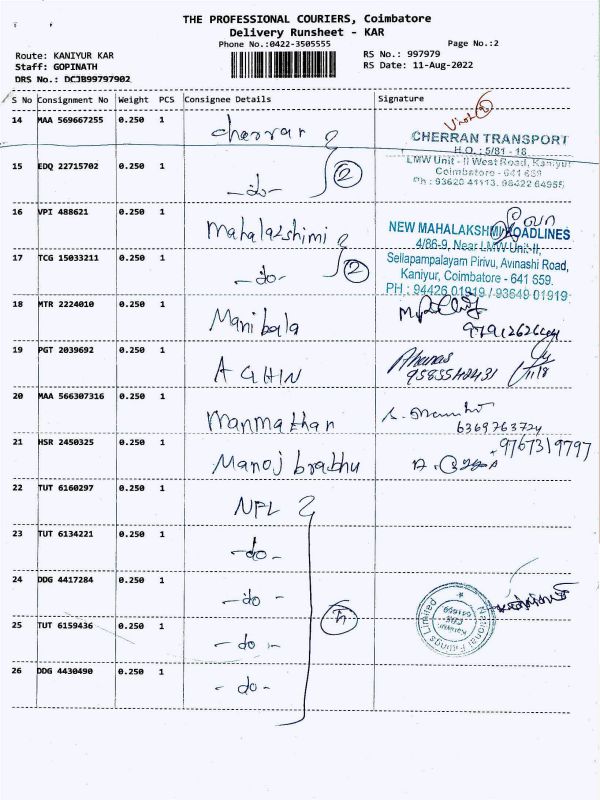 THE PROFESSIONAL COURIERS, Coimbatore
Delivery Runsheet - KAR
Phone No.:0422-3505555
Page No.:2
Route: KANIYUR KAR
Staff: GOPINATH
DRS No.: DCJB99797902
RS No.: 997979
RS Date: 11-Aug-2022
S No Consignment No Weight PCS Consignee Details Signature
14 MAA 569667255 0.250 1 cherran
CHERRAN TRANSPORT
H.O. : 5/81 - 18,
LMW Unit - II West Road, Kaniyur
Coimbatore - 641 659
Ph : 93620 41113, 98422 64955
15 EDQ 22715702 0.250 1 -do- 2
16 VPI 488621 0.250 1 Mahalakshimi
NEW MAHALAKSHMI ROADLINES
4/86-9, Near LMW Unit-II,
Sellapampalayam Pirivu, Avinashi Road,
Kaniyur, Coimbatore - 641 659.
PH : 94426 01919 / 93649 01919
17 TCG 15033211 0.250 1 -do- 2
18 MTR 2224010 0.250 1 Manibala
19 PGT 2039692 0.250 1 AGHIN
11/8
20 MAA 566307316 0.250 1 Manmathan
6369763724
21 HSR 2450325 0.250 1 Manoj brabhu
9767319797
22 TUT 6160297 0.250 1 NFL
23 TUT 6134221 0.250 1 -do-
24 DDG 4417284 0.250 1 -do-
National Fittings Limited
25 TUT 6159436 0.250 1 -do-
26 DDG 4430490 0.250 1 -do-